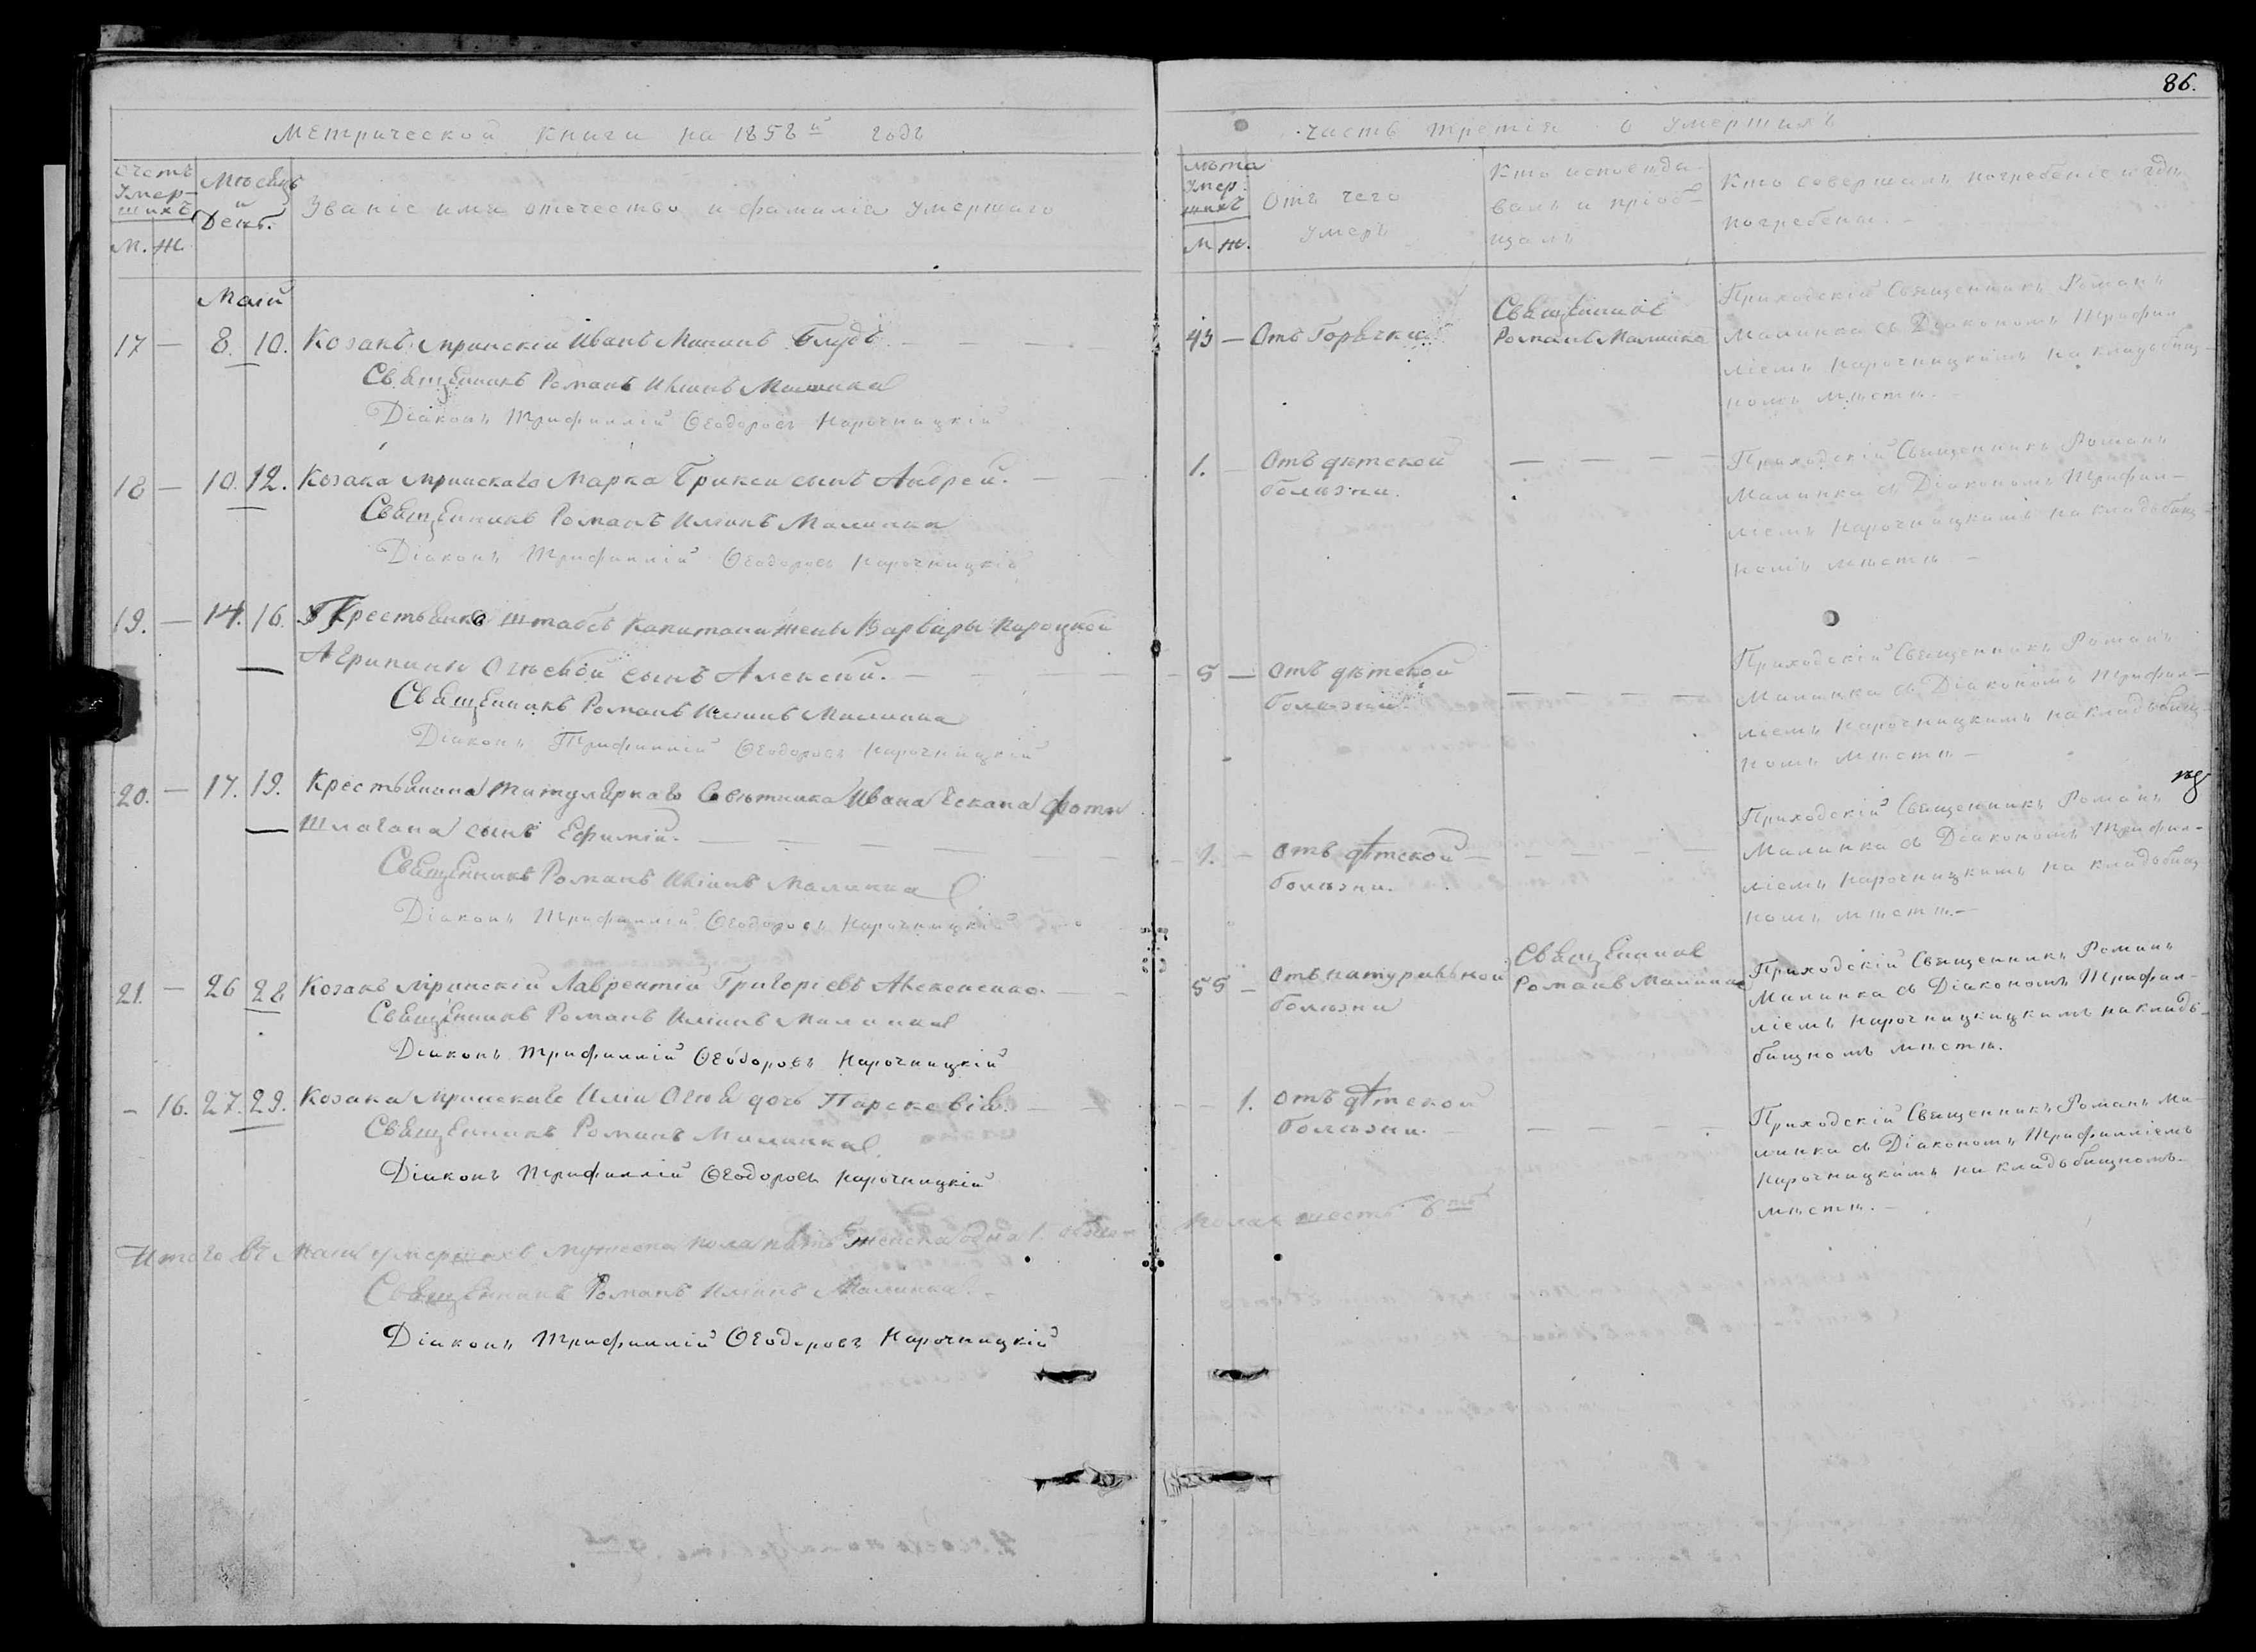 86.
Метрической книги на 1858й годъ
часть третія о умершихъ
Счетъ
Умер-
шихъ
М. Ж.
Мѣсяцъ
и
День.
Званіе имя отечество и фамилія умершаго
Лѣта
Умер-
шихъ
М Ж.
Отъ чего
умеръ
Кто исповѣды-
валъ и пріоб-
щалъ
Кто совершалъ погребеніе и гдѣ
погребены. -
Маій
17 — 8. 10. Козакъ мринскій Иванъ —
Священникъ Романъ Малинка
Діаконъ Трифиллій Ѳеодоровъ Нарочницкій
43 — Отъ Горячки
Священникъ
Романъ Малинка
Приходскій Священникъ Романъ
Малинка съ Діакономъ Трифил-
ліемъ Нарочницкимъ на кладьбищ-
номъ мѣстѣ. -
18 — 10. 12. Козака мринскаго Марка сынъ Андрей. —
Священникъ Романъ Малинка
Діаконъ Трифиллій Ѳеодоровъ Нарочницкій
1. — Отъ дѣтской
болѣзни.
Приходскій Священникъ Романъ
Малинка съ Діакономъ Трифил-
ліемъ Нарочницкимъ на кладьбищ-
номъ мѣстѣ —
19. — 14. 16. Крестьянки штабсъ капитана жены Варвары
Агрипины сынъ Алексей. —
Священникъ Романъ Малинка
Діаконъ Трифиллій Ѳеодоровъ Нарочницкій
5 — Отъ дѣтской
болѣзни
Приходскій Священникъ Романъ
Малинка съ Діакономъ Трифил-
ліемъ Нарочницкимъ на кладьбищ-
номъ мѣстѣ —
20. — 17. 19. Крестьянина Титулярнаго Совѣтника Ивана
сынъ Ефимій. —
Священникъ Романъ Малинка
Діаконъ Трифиллій Ѳеодоровъ Нарочницкій
1. — Отъ дѣтской
болѣзни.
Приходскій Священникъ Романъ
Малинка съ Діакономъ Трифил-
ліемъ Нарочницкимъ на кладьбищ-
номъ мѣстѣ. —
21. — 26 28 Козакъ мринскій Лаврентій Григоріевъ —
Священникъ Романъ Малинка
Діаконъ Трифиллій Ѳеодоровъ Нарочницкій
55 — Отъ натуральной
болѣзни
Священникъ
Романъ Малинка
Приходскій Священникъ Романъ
Малинка съ Діакономъ Трифил-
ліемъ Нарочницкицкимъ на кладь-
бищномъ мѣстѣ.
— 16. 27. 29. Козака мринскаго Иліи дочь Параскевія. —
Священникъ Романъ Малинка
Діаконъ Трифиллій Ѳеодоровъ Нарочницкій
— 1. Отъ дѣтской
болѣзни.
Приходскій Священникъ Романъ Ма-
линка съ Діакономъ Трифилліемъ
Нарочницкимъ на кладьбищномъ
мѣстѣ. —
Итого въ Маіи умершихъ мужеска пола пять 5 женска одна 1. обоего пола шесть 6ть
Священникъ Романъ Малинка
Діаконъ Трифиллій Ѳеодоровъ Нарочницкій